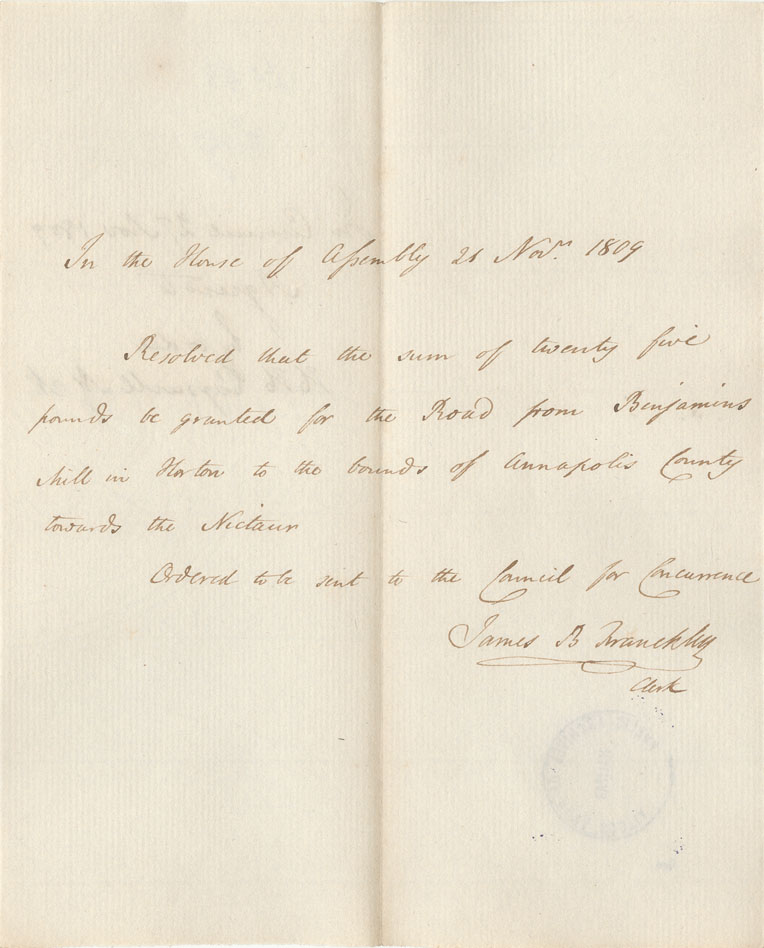 In the House of Assembly 21 Novr. 1809
Resolved that the sum of twenty five
pounds be granted for the Road from Benjamins
Mill in Horton to the bounds of Annapolis County
towards the Nictaux
Ordered to be sent to the Council for Concurrence
James B Franckly
Clerk